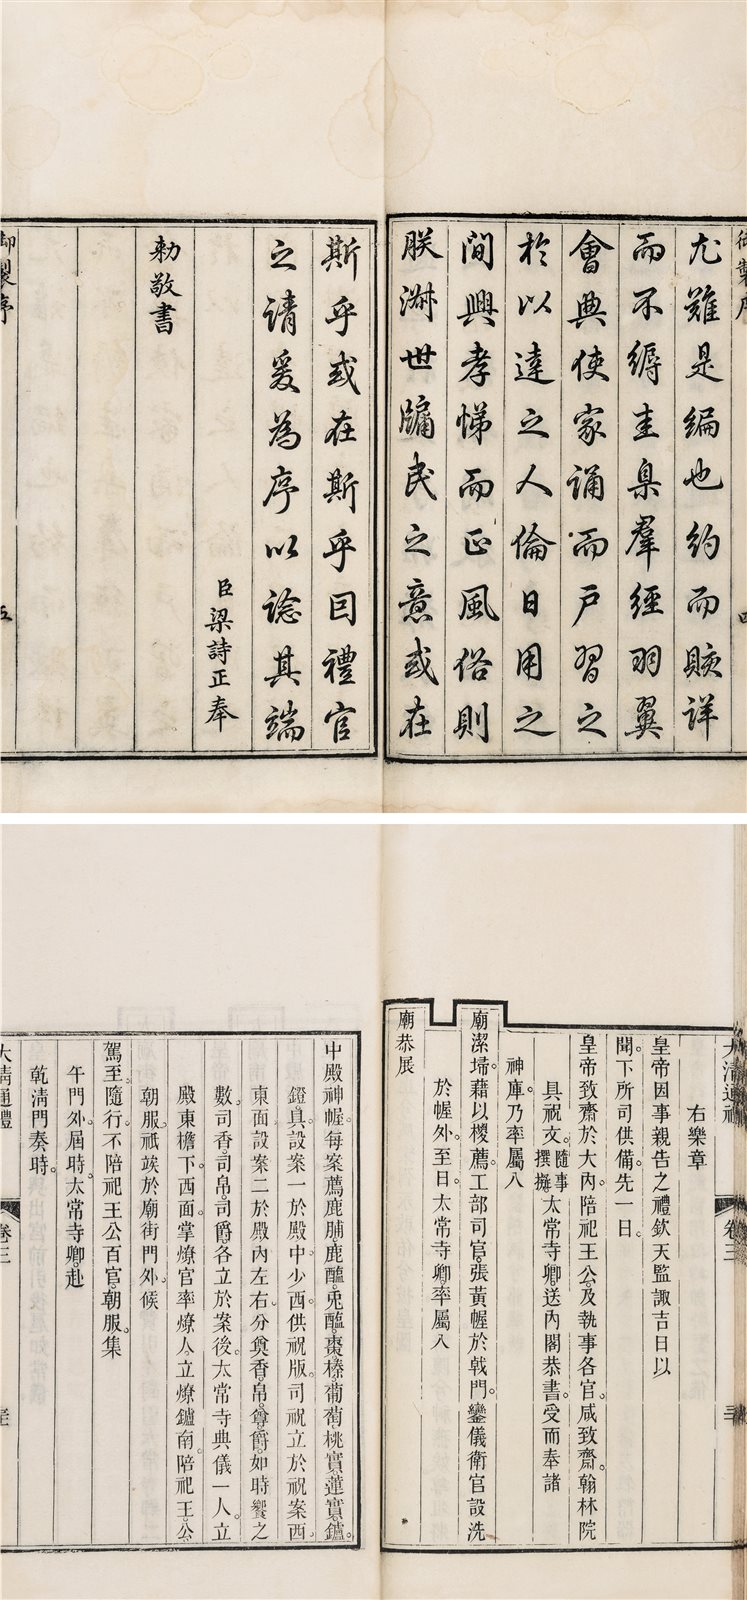 御製序
尤雖是編也約而賅詳
而不縟圭臬羣經羽翼
會典使家誦而戶習之
於以達之人倫日用之
間興孝悌而正風俗則
朕淑世牖民之意或在
四
斯乎或在斯乎因禮官
之請爰為序以諗其端
臣梁詩正奉
勅敬書
御製序
五
大清通禮
卷三
右樂章
皇帝因事親告之禮欽天監諏吉日以
聞下所司供備先一日
皇帝致齋於大內陪祀王公及執事各官咸致齋翰林院
具祝文隨事撰擬太常寺卿送內閣恭書受而奉諸
神庫乃率屬入
廟潔埽藉以椶薦工部司官張黃幄於戟門鑾儀衛官設洗
於幄外至日太常寺卿率屬入
廟恭展
中殿神幄每案薦鹿脯鹿醢兎醢棗榛葡萄桃實蓮實鑪
鐙具設案一於殿中少西供祝版司祝立於祝案西
東面設案二於殿內左右分奠香帛尊爵如時饗之
數司香司帛司爵各立於案後太常寺典儀一人立
殿東檐下西面掌燎官率燎人立燎鑪南陪祀王公
朝服祇竢於廟街門外候
駕至隨行不陪祀王公百官朝服集
午門外屆時太常寺卿赴
乾清門奏時
大清通禮
卷三